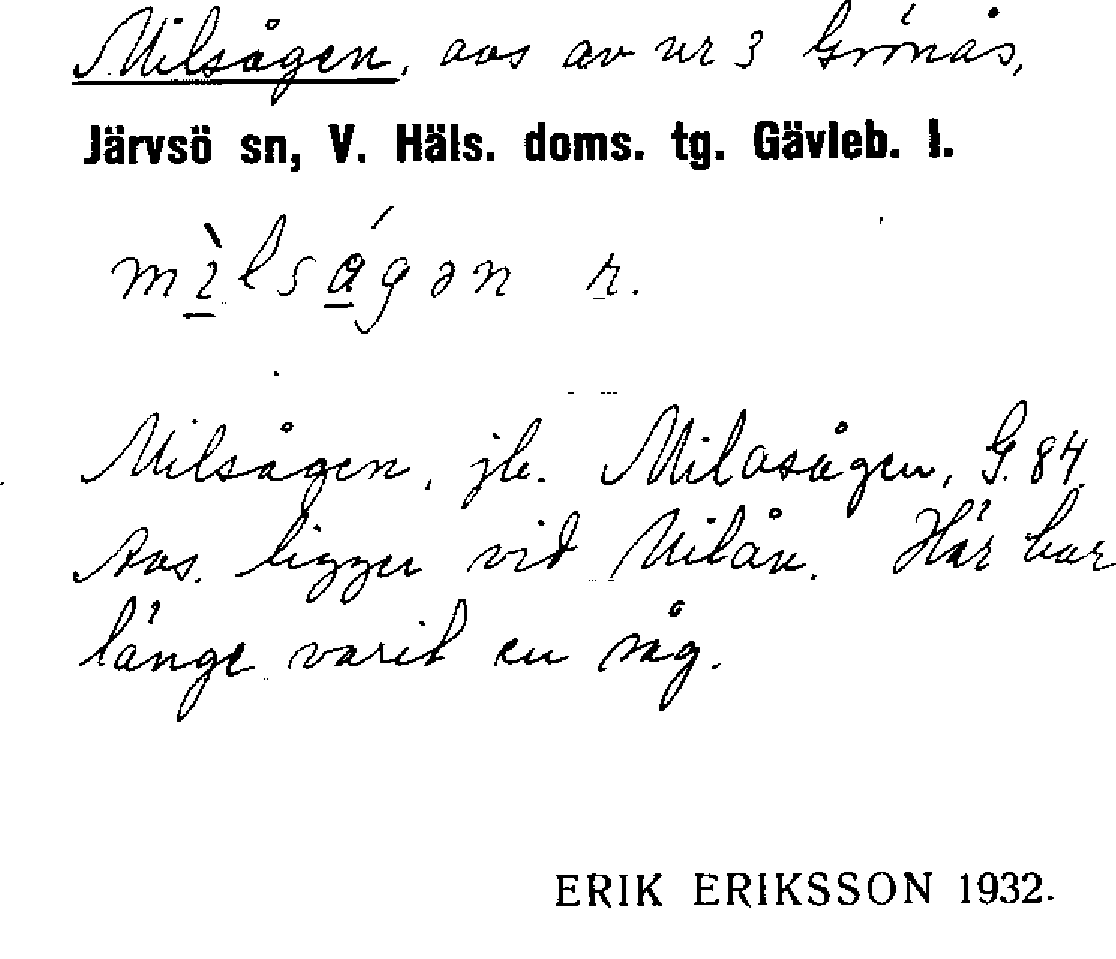 Milsågen, avs av nr 3 Grönås,
Järvsö sn, V. Häls. doms. tg. Gävleb. l.
mìlságən r.
Milsågen, jb. Milasågen, G. 84.
Avs. ligger vid Milån. Här har
länge varit en såg.
ERIK ERIKSSON 1932.